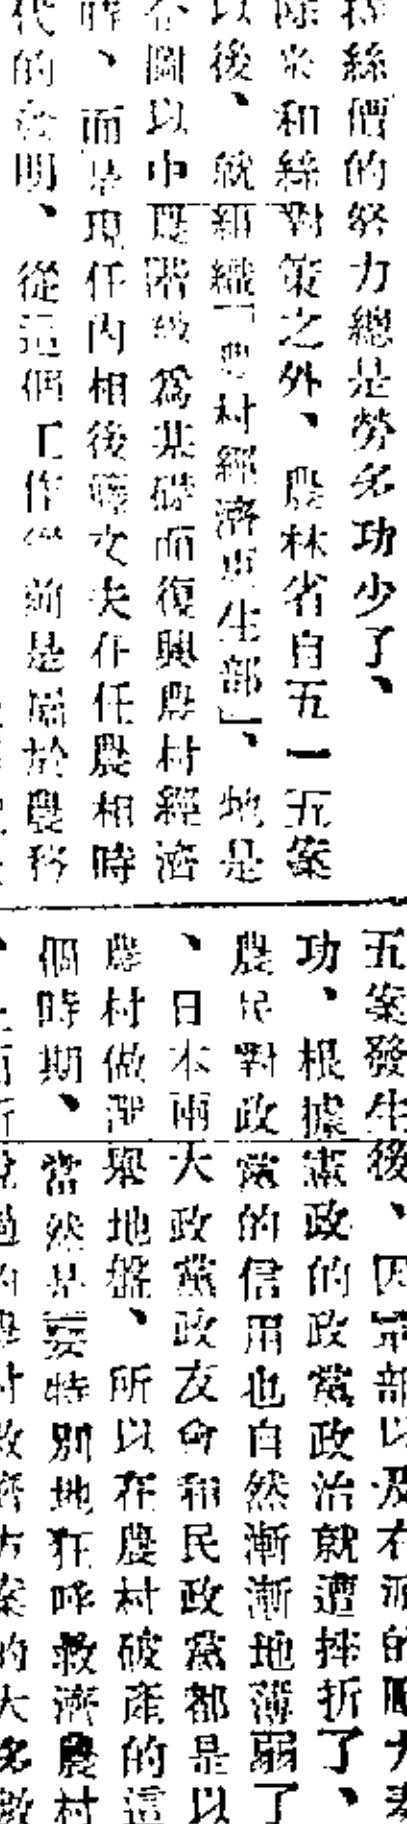 持絲價的努力總是勞多功少了、
除米和絲對策之外、農林省自五一五案
以後、就組織「農村經濟更生部」、地是
企圖以中農階級爲基礎而復興農村經濟
時、而是現任內相後藤文夫在任農相時
代的發明、從這個工作從前是屬於農務
五案發生後、因軍部以及右派的
功、根據憲政的政黨政治就遭挫折了、
農民對政黨的信用也自然漸漸地薄弱了
、日本兩大政黨政友會和民政黨都是以
農村做選舉地盤、所以在農村破產的這
個時期、當然是要特別地狂呼救濟農村
過的農村救濟方案的大多數